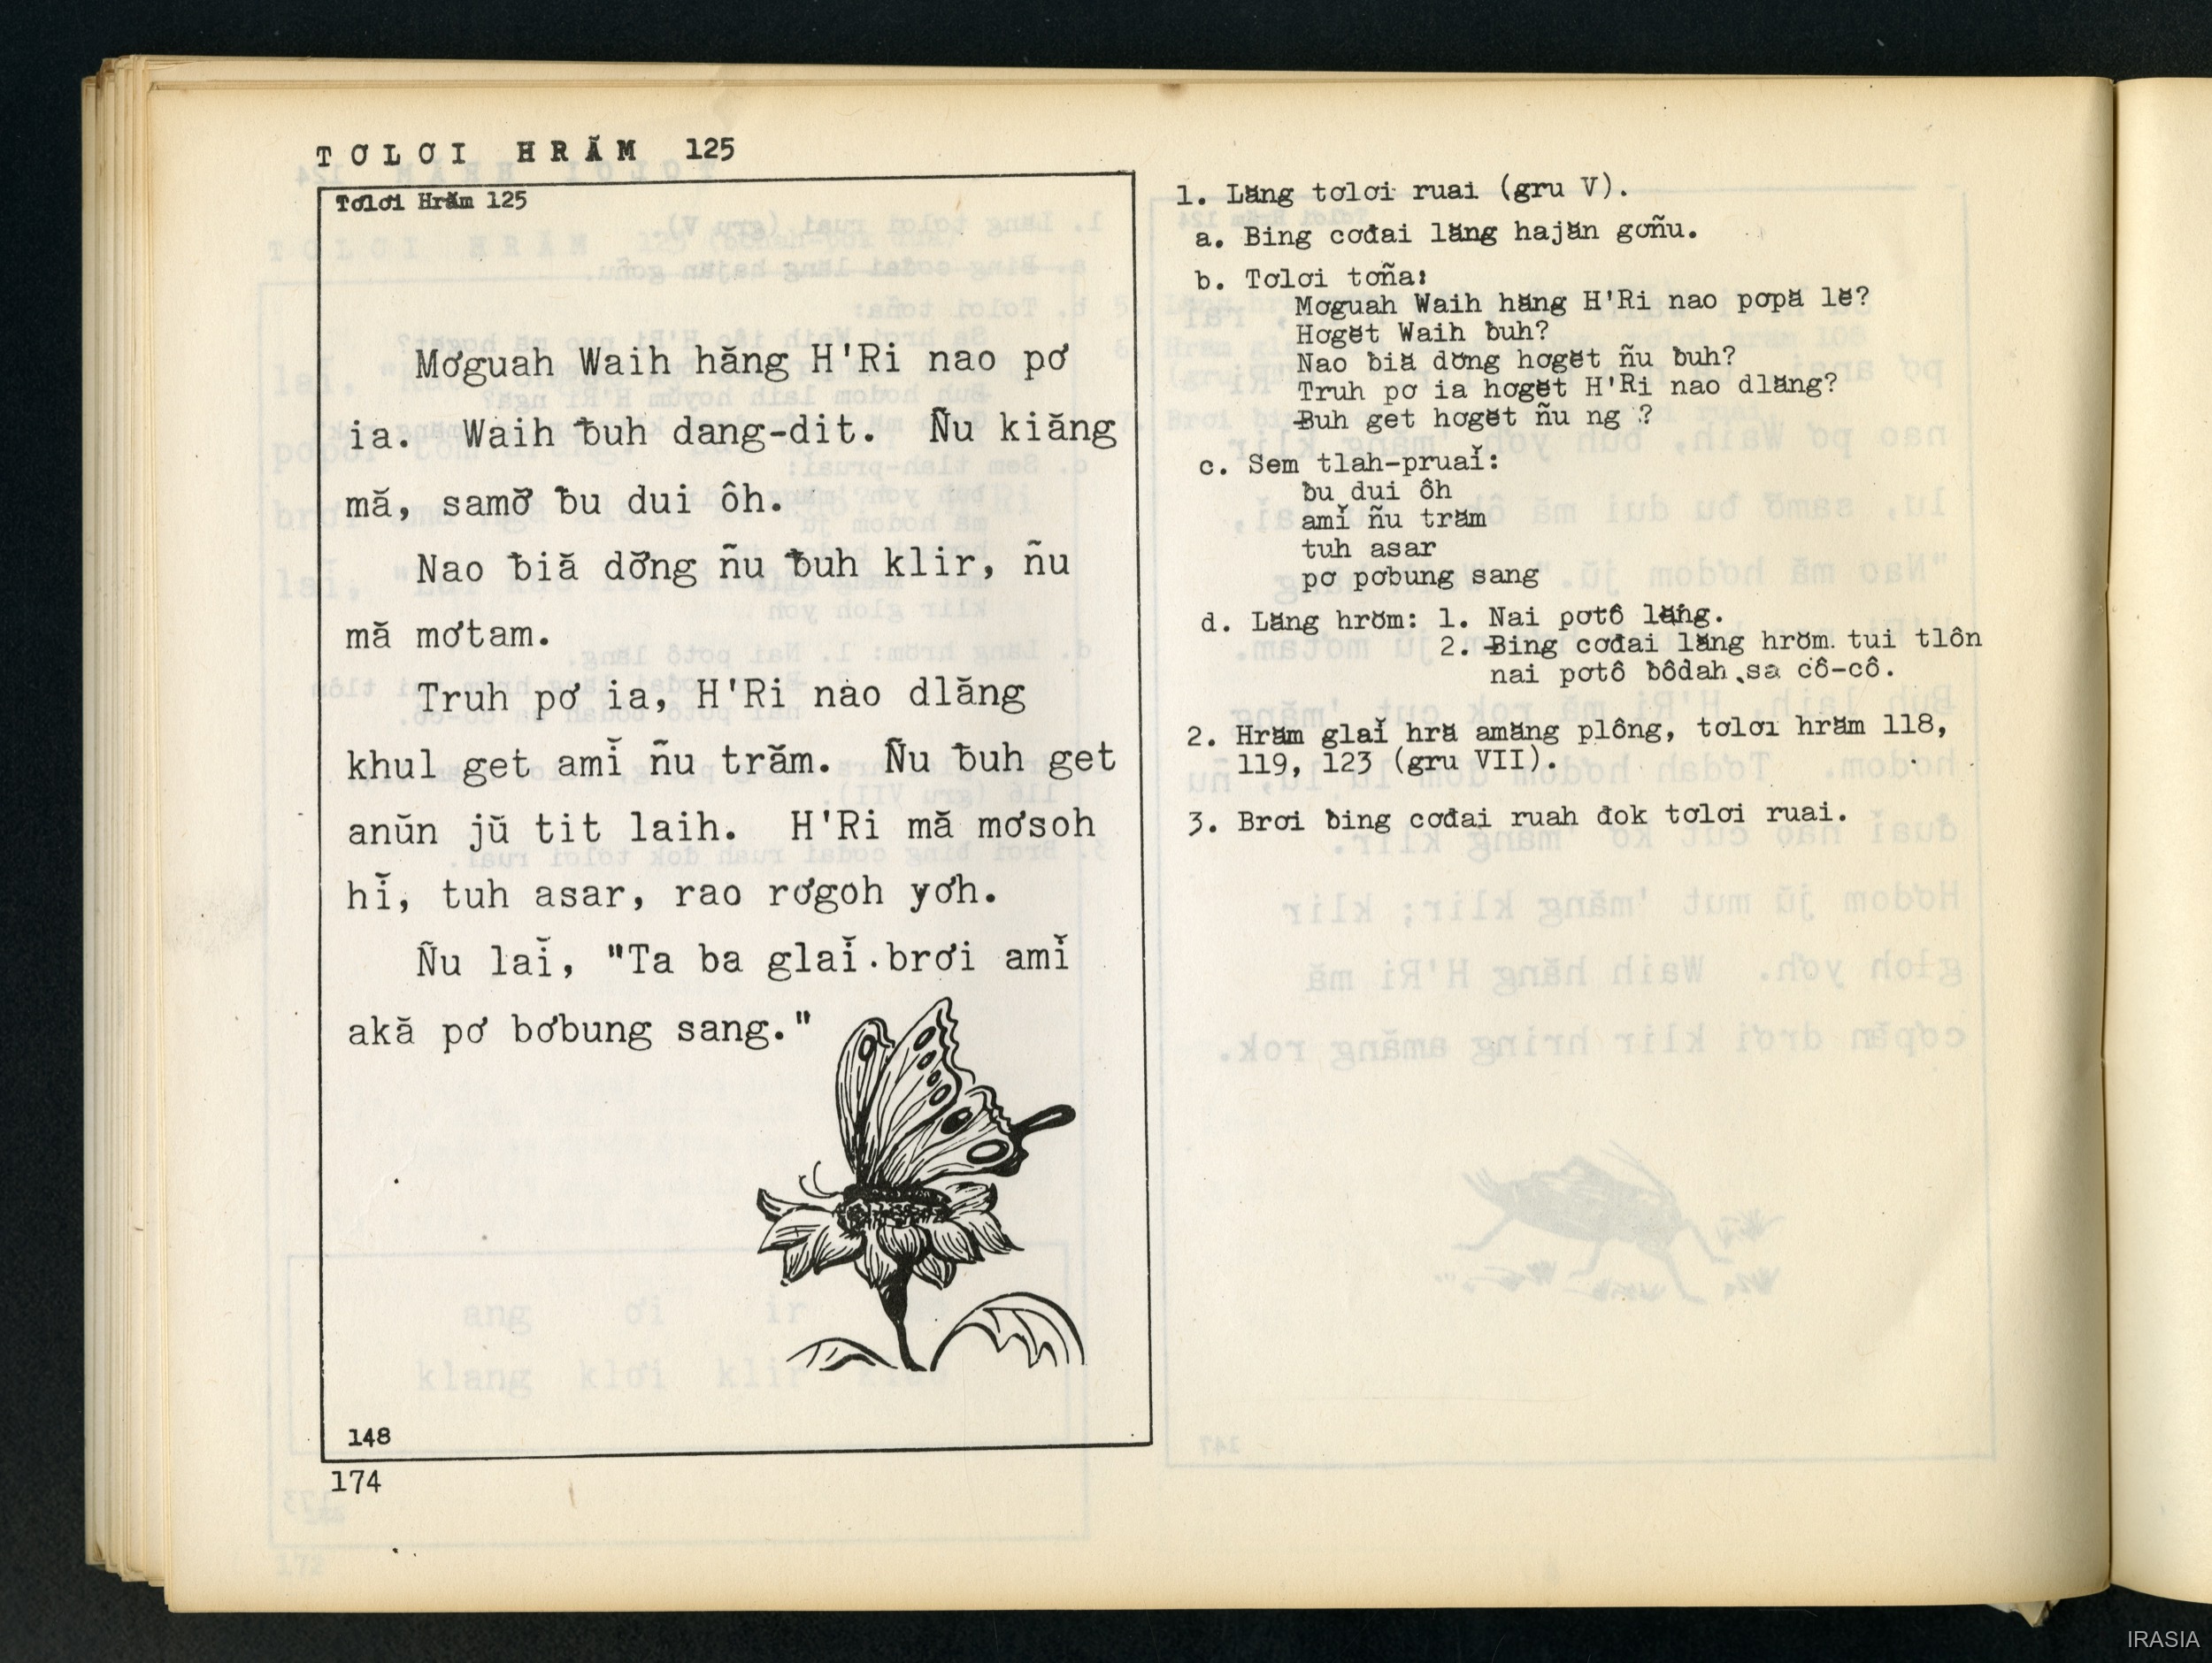 TƠLƠI HRĂM 125
Tơlơi Hrăm 125
Mơguah Waih hăng H'Ri nao pơ
ia. Waih ƀuh dang-dit. Ñu kiăng
mă, samơ̆ ƀu dui ôh.
Nao ƀiă dơ̆ng ñu ƀuh klir, ñu
mă mơtam.
Truh pơ ia, H'Ri nao dlăng
khul get amĭ ñu trăm. Ñu ƀuh get
anŭn jŭ tit laih. H'Ri mă mơsoh
hĭ, tuh asar, rao rơgoh yơh.
Ñu laĭ, "Ta ba glaĭ brơi amĭ
akă pơ bơbung sang."
148
174
1. Lăng tơlơi ruai (gru V).
a. Bing cơđai lăng hajăn gơñu.
b. Tơlơi tơña:
Mơguah Waih hăng H'Ri nao pơpă lĕ?
Hơgĕt Waih ƀuh?
Nao ƀiă dơ̆ng hơgĕt ñu ƀuh?
Truh pơ ia hơgĕt H'Ri nao dlăng?
Ƀuh get hơgĕt ñu ng ?
c. Sem tlah-pruaĭ:
ƀu dui ôh
amĭ ñu trăm
tuh asar
pơ pơbung sang
d. Lăng hrŏm: 1. Nai pơtô lăng.
2. Ƀing cơđai lăng hrŏm tui tlôn
nai pơtô ƀôdah sa cô-cô.
2. Hrăm glaĭ hră amăng plông, tơlơi hrăm 118,
119, 123 (gru VII).
3. Brơi ƀing cơđai ruah đok tơlơi ruai.
IRASIA